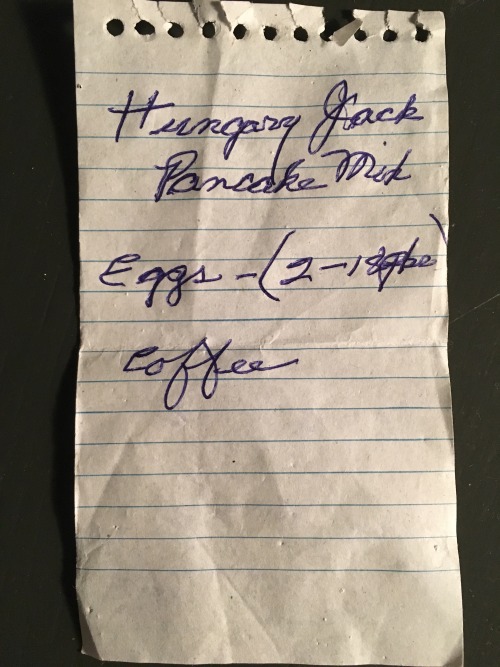 Hungary Jack
Pancake Mix
Eggs - (2-18
Coffee